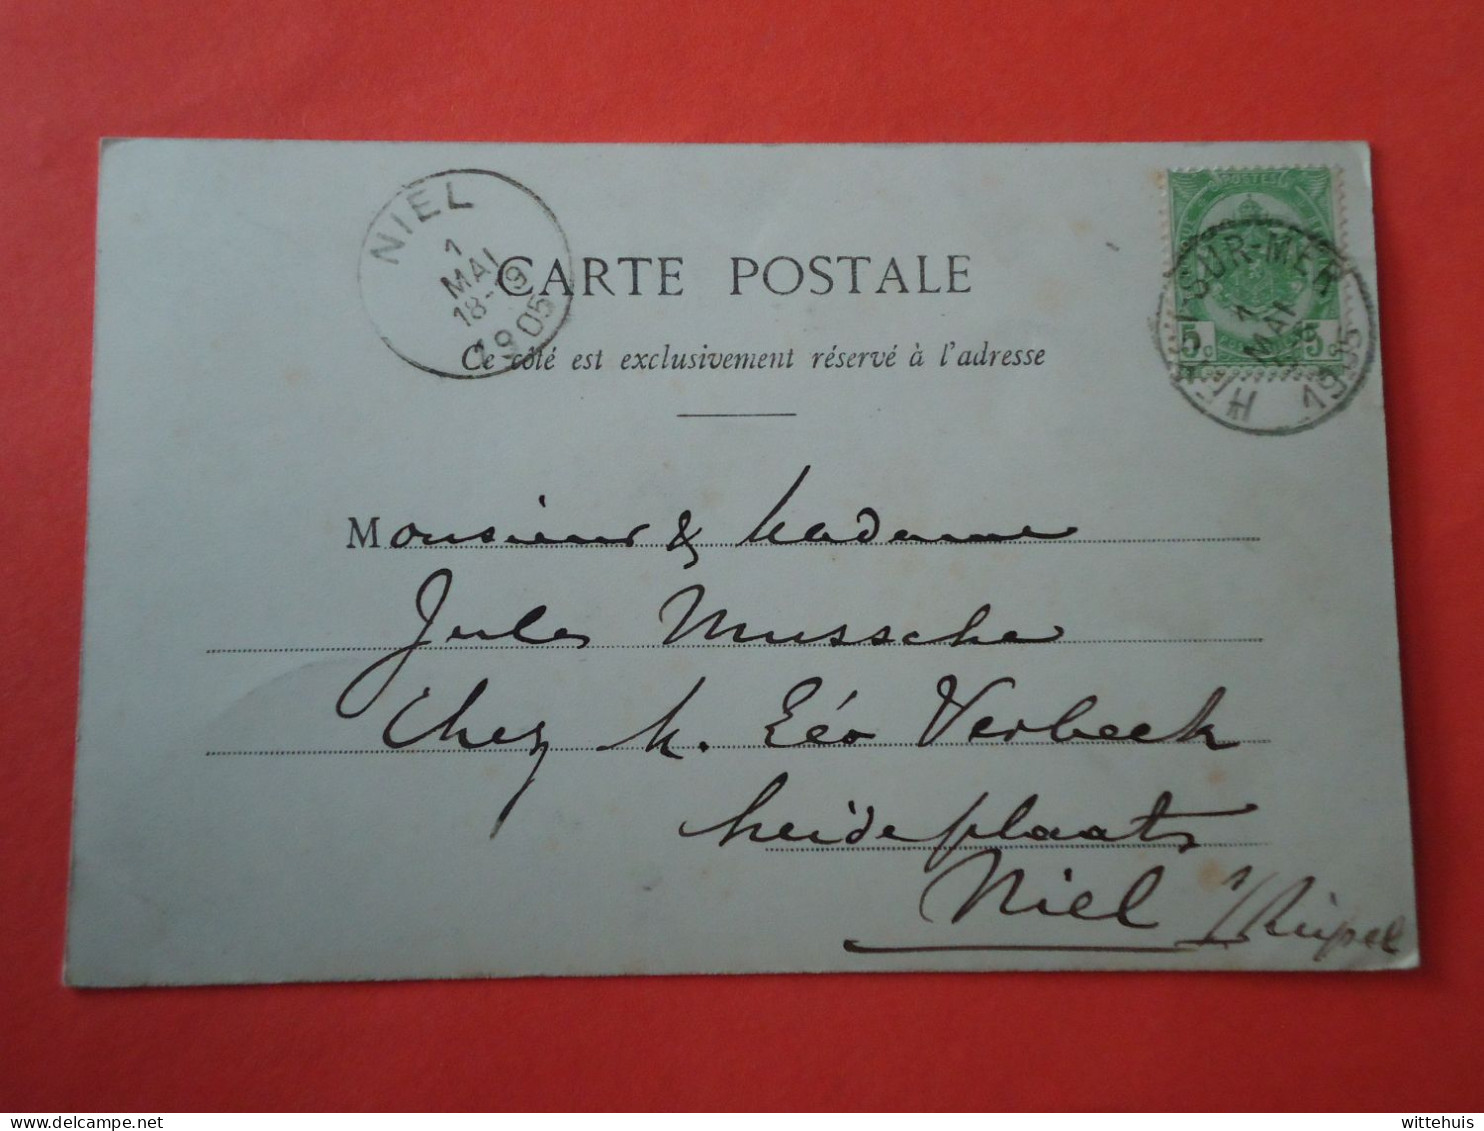 NIEL
1
MAI
18-19
1905
CARTE POSTALE
Ce côté est exclusivement réservé à l'adresse
POSTES
SUR-MER
1
MAI
1905
5 5
Monsieur & Madame
Jules Mussche
Chez M. Léo Verbeek
heideplaats
Niel s/Rupel
wittehuis